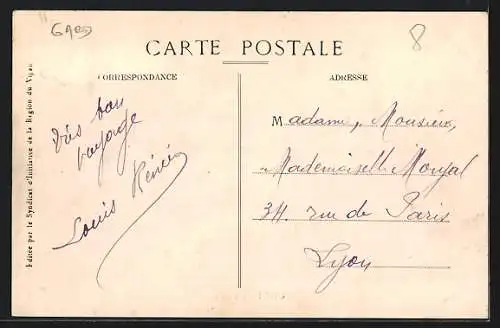 GARD
8
CARTE POSTALE
CORRESPONDANCE
ADRESSE
Editée par le Syndicat d'Initiative de la Région du Vigan
Très bon
voyage
Louis
Madame, Monsieur,
Mademoiselle
34 rue de Paris
Lyon